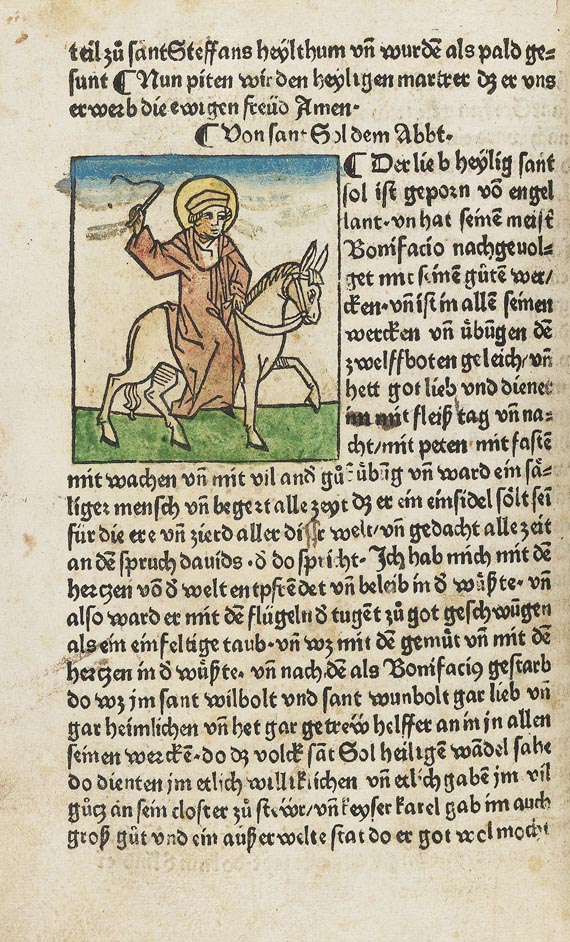 teil zů sant Steffans heylthum vn̄ wurdē als pald ge⸗
sunt ¶ Nun piten wir den heyligen martrer dz er vns
erwerb die ewigen freüd Amen·
¶ Von sant Sol dem Abbt·
¶ Der lieb heylig sant
sol ist geporn vō engel
lant·vn̄ hat seinē meist̄
Bonifacio nachgeuol⸗
get mit seinē gůtē wer/
cken·vn̄ ist in allē seinen
wercken vn̄ ůbůgen dē
zwelffboten geleich/vn̄
hett got lieb vnd dienet
im mit fleiß tag vn̄ na⸗
cht/mit peten mit fastē
mit wachen vn̄ mit vil and̄ gů⸗ ůbūg vn̄ ward ein sä⸗
liger mensch vn̄ begert alle zeyt dz er ein einsidel sölt sei
für die ere vn̄ zierd aller diser welt/vn̄ gedacht alle zeit
an dē spruch dauids·d̄ do spricht·Ich hab mich mit dē
hertzen vō d̄ welt entpfrēdet vn̄ beleib in d̄ wůßte·vn̄
also ward er mit dē flügeln d̄ tugēt zů got geschwūgen
als ein einfeltige taub·vn̄ wz mit dē gemůt vn̄ mit dē
hertzen in d̄ wůßte·vn̄ nach dē als Bonifaciꝰ gestarb
do wz jm sant wilbolt vnd sant wunbolt gar lieb vn̄
gar heimlichen vn̄ het gar getrew helffer an in jn allen
seinen werckē·do dz volck sāt Sol heiligē wādel sahe
do dienten jm etlich williklichen vn̄ etlich gabē jm vil
gůtz an sein closter zů stewr/vn̄ keyser karel gab im auch
groß gůt vnd ein außerwelte stat do er got wol mocht